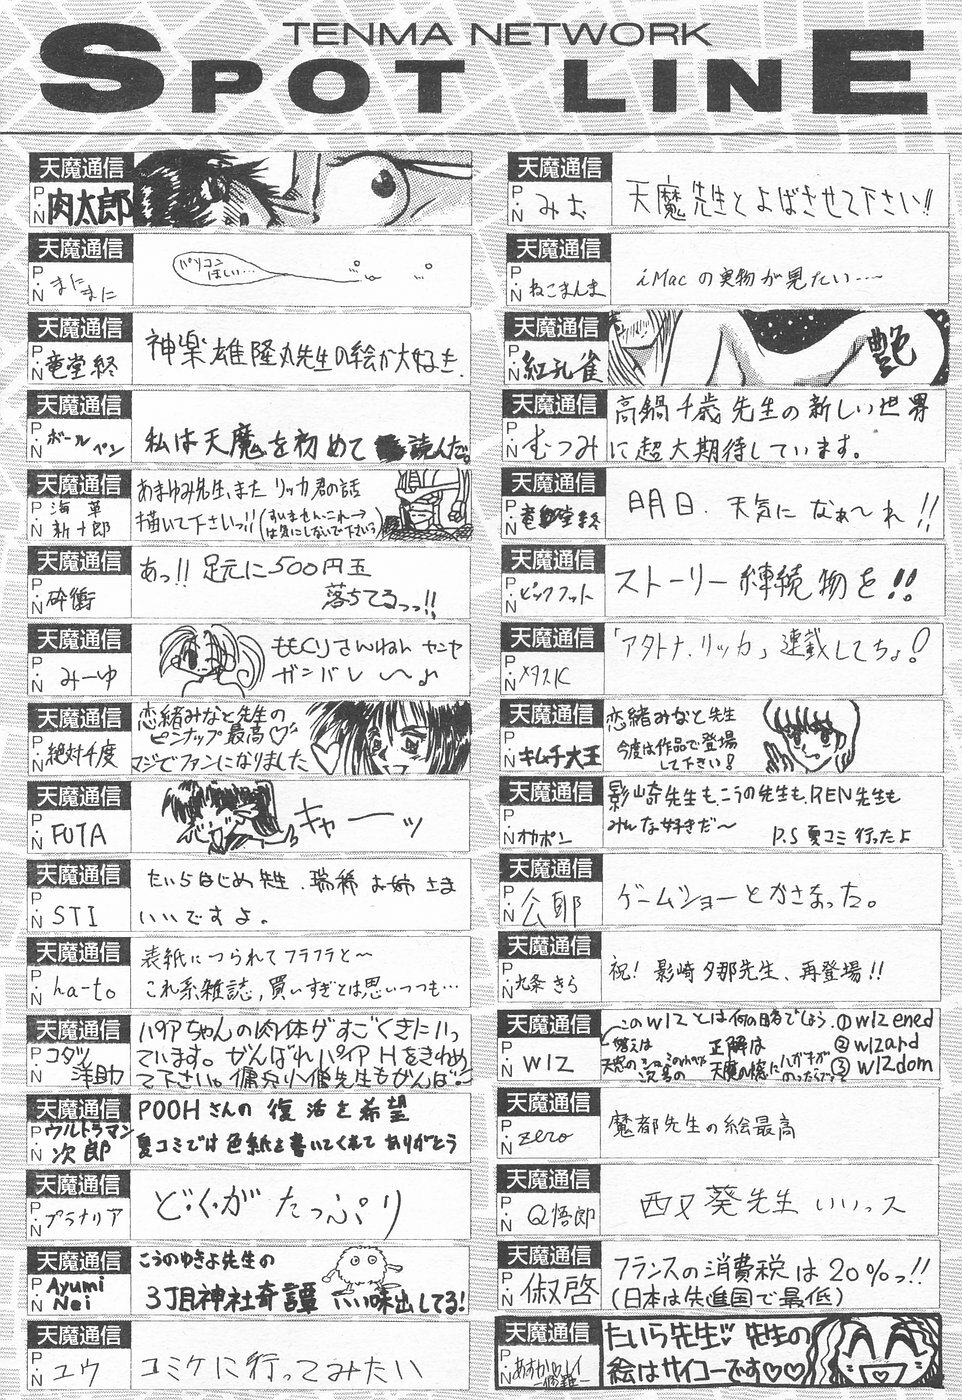 TENMA NETWORK
SPOT LINE
天魔通信
P・N 肉太郎
天魔通信
P・N まにまに
パソコン
ほしい…
天魔通信
P・N 竜堂終
神楽雄隆丸先生の絵が大好き.
天魔通信
P・N ボールペン
私は天魔を初めて読んだ。
天魔通信
P・N 海草新十郎
あまゆみ先生、また リッカ君の話
描いて下さいっ!!(すいません、これ→
は気にしないで下さいう)
天魔通信
P・N 砕衝
あっ!! 足元に500円玉
落ちてるっっ!!
天魔通信
P・N みーゆ
ももくりさんねん
ガンバレ 〜♪
天魔通信
P・N 絶対千度
恋緒みなと先生の
ピンナップ最高♡
マジでファンになりました
天魔通信
P・N FUTA
キャーーッ
天魔通信
P・N STI
たいらはじめ先生、瑞稀お姉さま
いいですよ。
天魔通信
P・N ha-to
表紙につられてフラフラと〜
これ系雑誌,買いすぎとは思いつつも…
天魔通信
P・N コダソ洋助
パイアちゃんの肉体がすごくきにいっ
ています。がんばれパイア Hをきわめ
て下さい。傭兵小僧先生もがんば!
天魔通信
P・N ウルトラマン次郎
POOHさんの 復活を希望
夏コミでは色紙を書いてくれて ありがとう
天魔通信
P・N プラナリア
どくがたっぷり
天魔通信
P・N Ayumi Nei
こうのゆきよ先生の
3丁目神社奇譚 いい味出してる!
天魔通信
P・N ユウ
コミケに行ってみたい
天魔通信
P・N みお
天魔先生とよばさせて下さい!!
天魔通信
P・N ねこまんま
iMacの実物が見たい……
天魔通信
P・N 紅孔雀
艶
天魔通信
P・N むつみ
高鍋千歳先生の新しい世界
に超大期待しています。
天魔通信
P・N 竜堂終
明日、天気になぁ〜れ!!
天魔通信
P・N ビックフット
ストーリー練続物を!!
天魔通信
P・N メタスK
「アタトナ、リッカ」連載してちょ!
天魔通信
P・N キムチ大王
恋緒みなと先生
今度は作品で登場
して下さい!
天魔通信
P・N オカポン
影崎先生も、こうの先生も、REN先生も
みんな好きだ〜 P.S 夏コミ行ったよ
天魔通信
P・N 公耶
ゲームショーとかさなった。
天魔通信
P・N 九条きら
祝! 影崎夕那先生、再登場!!
天魔通信
P・N WIZ
このWIZとは何の略でしょう.①wizened
答えは 正解は ②wizard
③wizdom
天魔通信
P・N zero
魔都先生の絵最高
天魔通信
P・N Q悟郎
西又葵先生 いいっス
天魔通信
P・N 俶啓
フランスの消費税は20%っ!!
(日本は先進国で最低)
天魔通信
P・N あすか
たいら先生♡ 先生の
絵はサイコーです♡♡